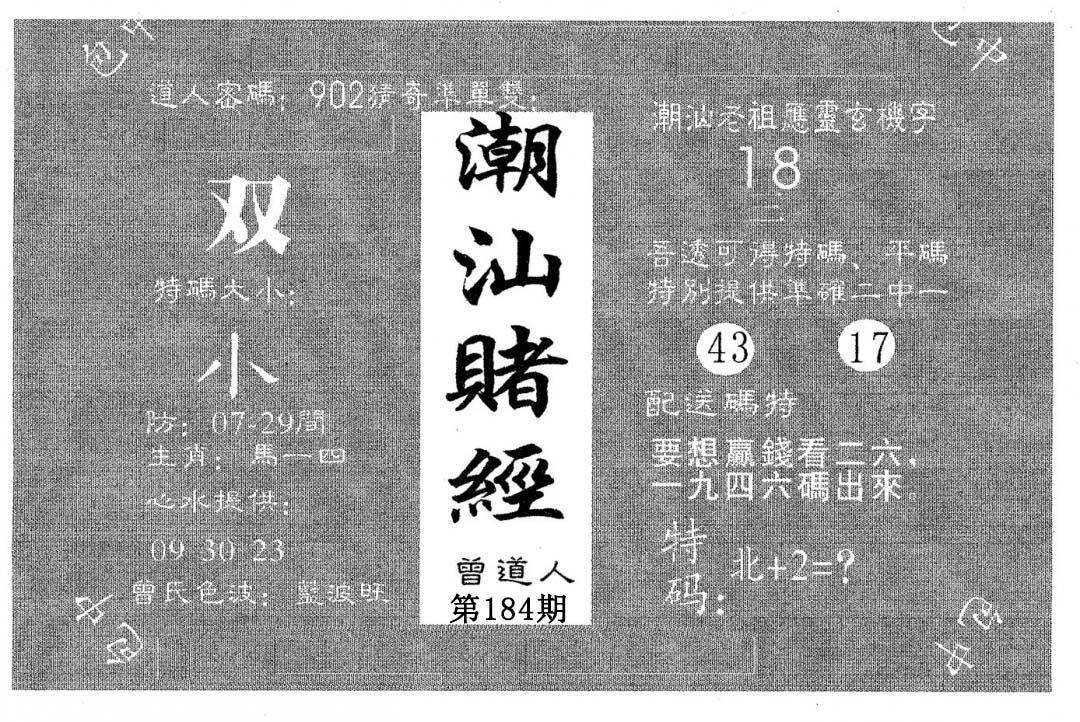 包中
包中
道人密碼：902猜奇準單雙：
双
特碼大小：
小
防：07-29間
生肖：馬一四
心水提供：
09 30 23
曾氏色波：藍波旺
潮汕賭經
曾道人
第184期
潮汕老祖應靈玄機字
18
二
吾透可得特碼、平碼
特別提供準確二中一
43 17
配送碼特
要想贏錢看二六，
一九四六碼出來。
特码：
北+2=?
包中
包中